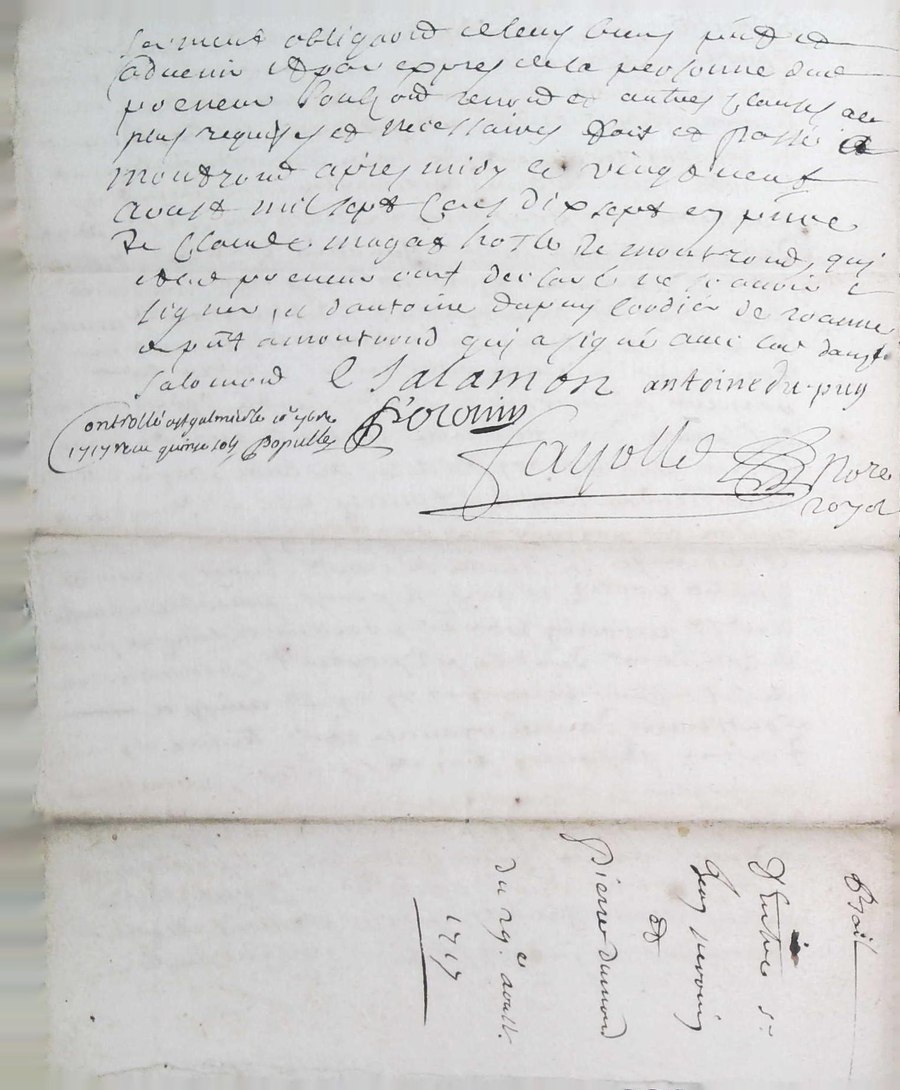 serment obligation de leurs biens pñts et
advenir et par expres de la personne dud
preneur soubz renon et autres clauses au
plus requises et necessaires fait et passé a
montrond apres midy le vingt neuf
aoust mil sept cens dix sept en pñce
de Claude magat hoste de montrond, qui
et led preneur ont declaré ne scavoir
signer, et d'antoine dupuy de roanne
pñt a montrond qui a signé avec led
Salomond C Salamon antoine du puy
Peronin
Controllé a st galmier le 10e 7bre
1717 receu quinze sols Populle
fayolle nore
royal
Bail
D'Entre sr
Jean peronin
et
Pierre Dumond
du 29e aoust
1717